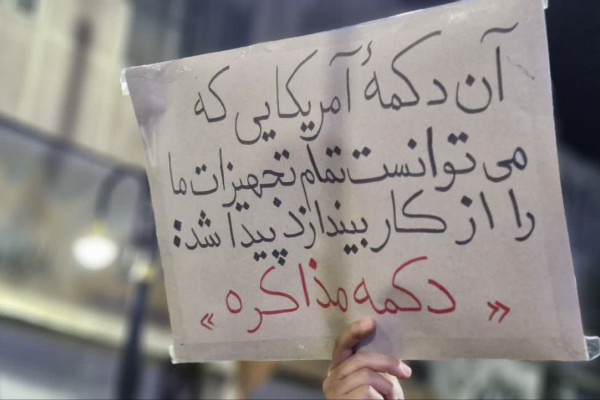 آن دکمهٔ آمریکایی که
می‌توانست تمام تجهیزات ما
را از کار بیندازد پیدا شد:
«دکمه مذاکره»